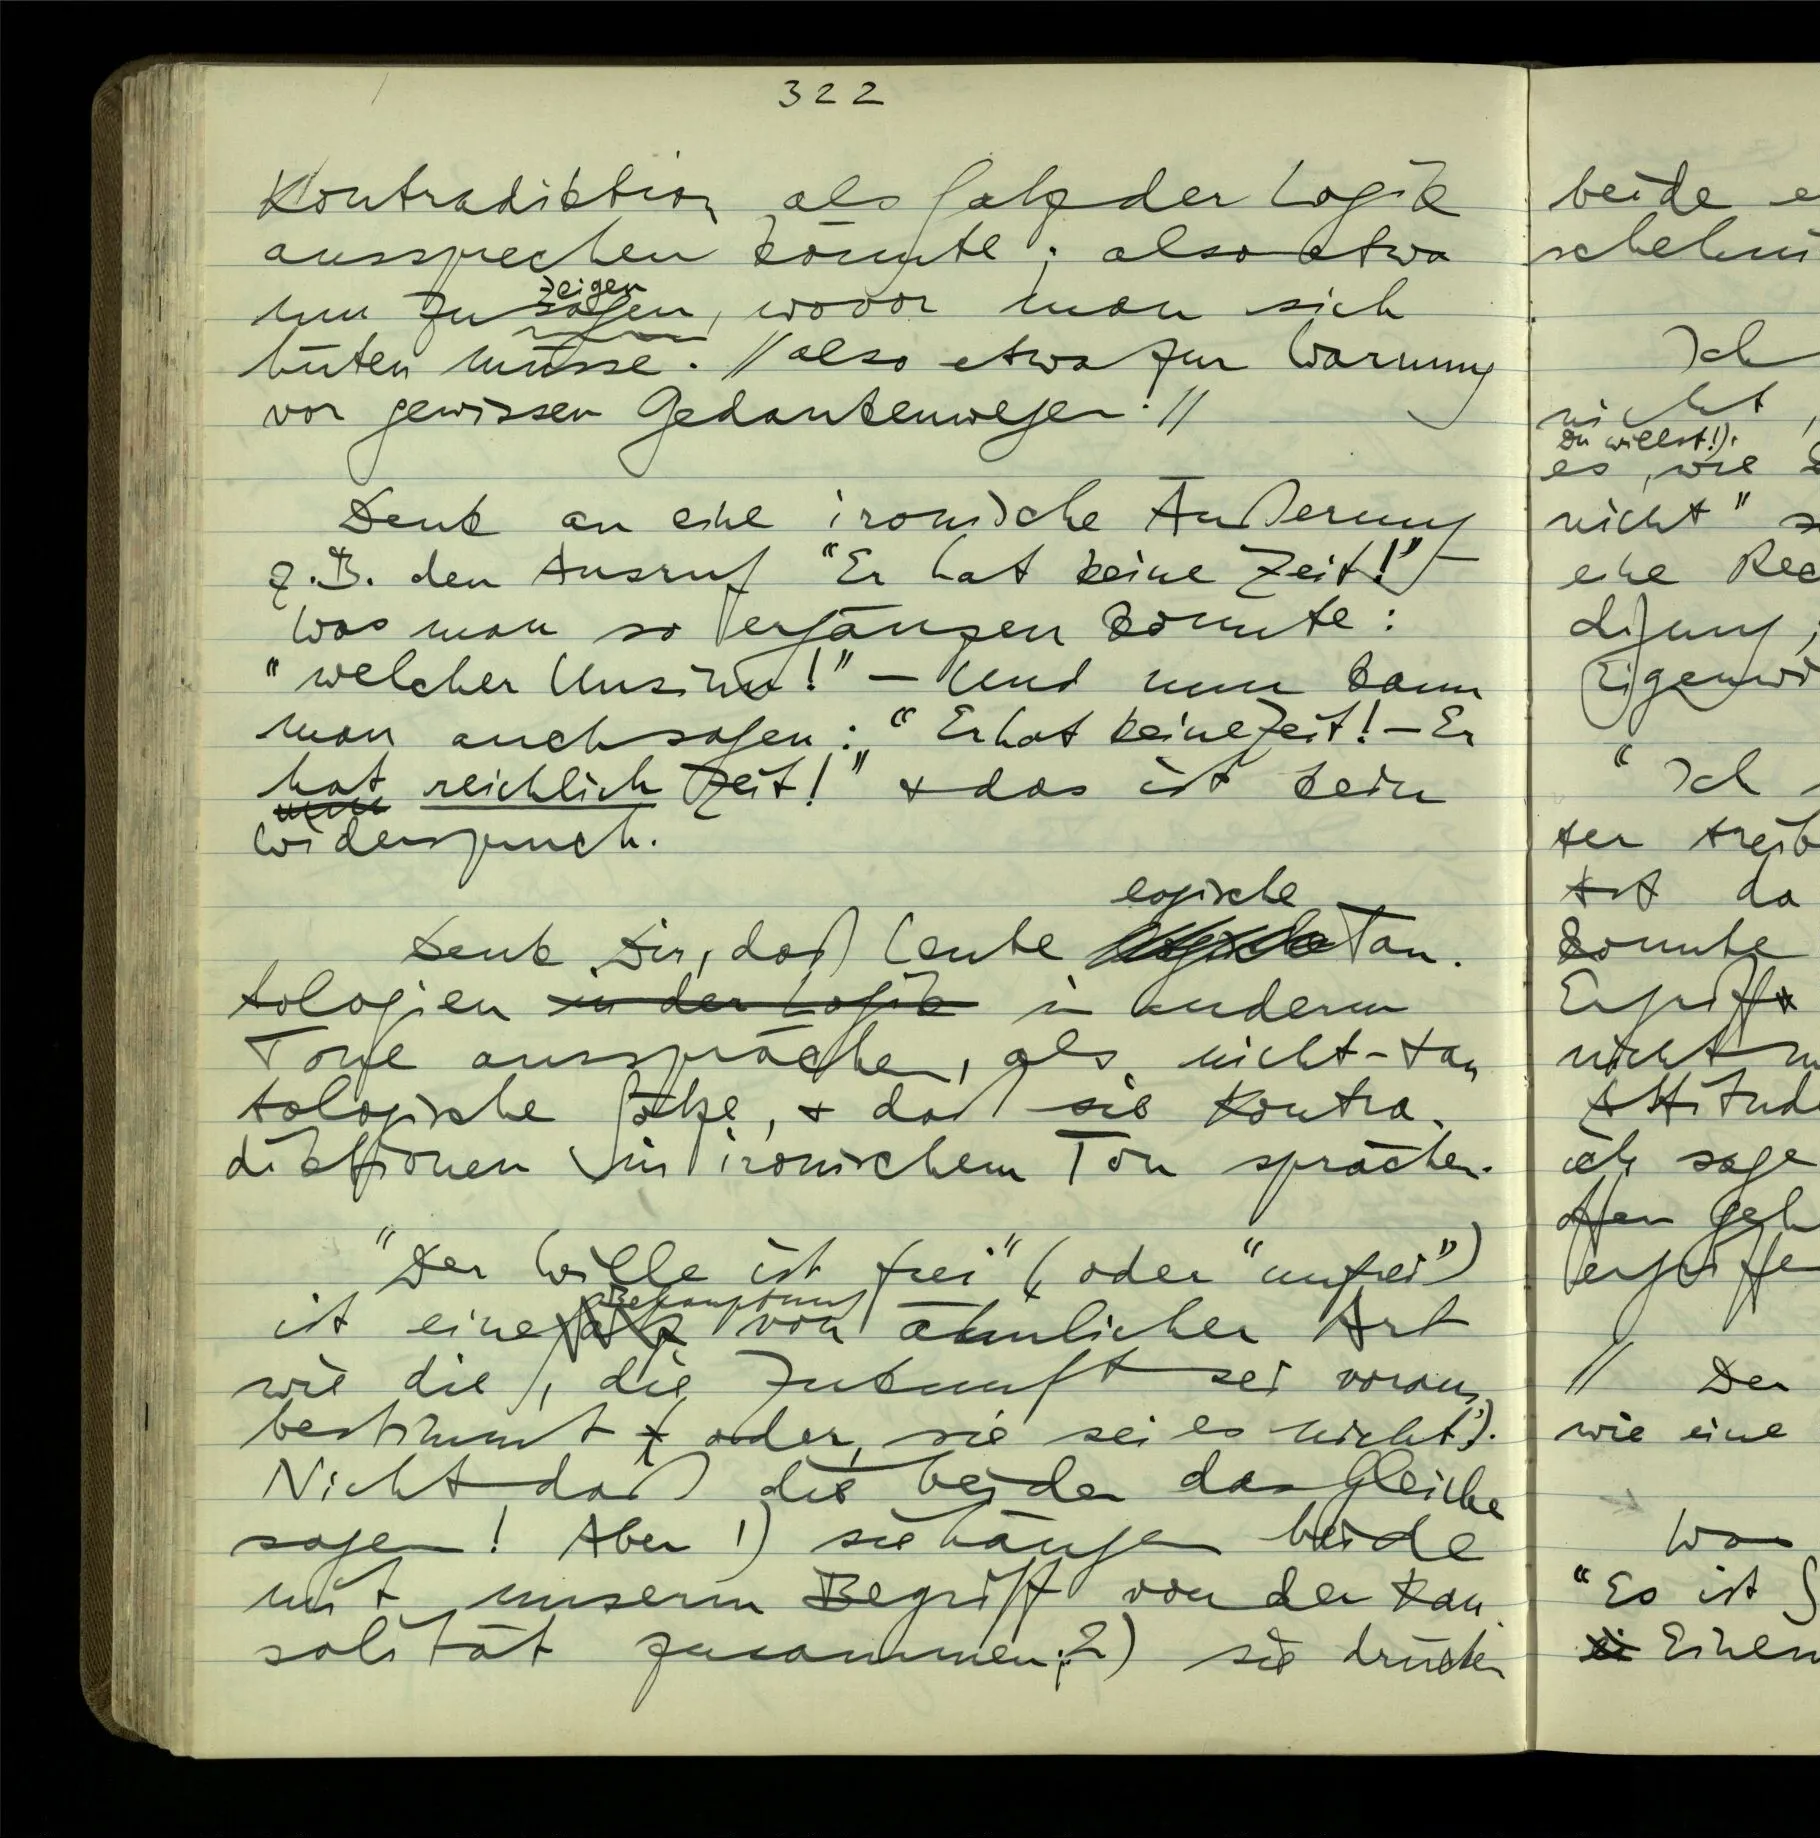 322
Kontradiktion als Satz der Logik
aussprechen könnte; also etwa
zeigen
um zu sagen, wovor man sich
hüten müsse. // also etwa zur Warnung
vor gewissen Gedankenwegen. //
Denk an eine ironische Äußerung
z.B. den Ausruf “Er hat keine Zeit!” –
Was man so ergänzen könnte:
“welcher Unsinn!” – Und nun kann
man auch sagen: “Er hat keine Zeit! – Er
hat reichlich Zeit!” & das ist kein
Widerspruch.
logische
Denk Dir, daß Leute logische Tau-
tologien in der Logik in anderm
Tone aussprächen, als nicht-tau
tologische Sätze, & daß sie Kontra-
diktionen im ironischem Ton sprächen.
“Der Wille ist frei” (oder “unfrei”)
Behauptung
ist eine Satz von ähnlicher Art
wie die, die Zukunft sei voraus
bestimmt (oder, sie sei es nicht).
Nicht daß die beiden das Gleiche
sagen! Aber 1) sie hängen beide
mit unserm Begriff von der Kau
salität zusammen; 2) sie drücken
beide
Ich
nicht,
Du willst!).
es, wie
nicht”
eine
digung;
“Ich
ter
da
konnte
nicht
ich sage
// Der
wie eine
Was
“Es ist
Einem